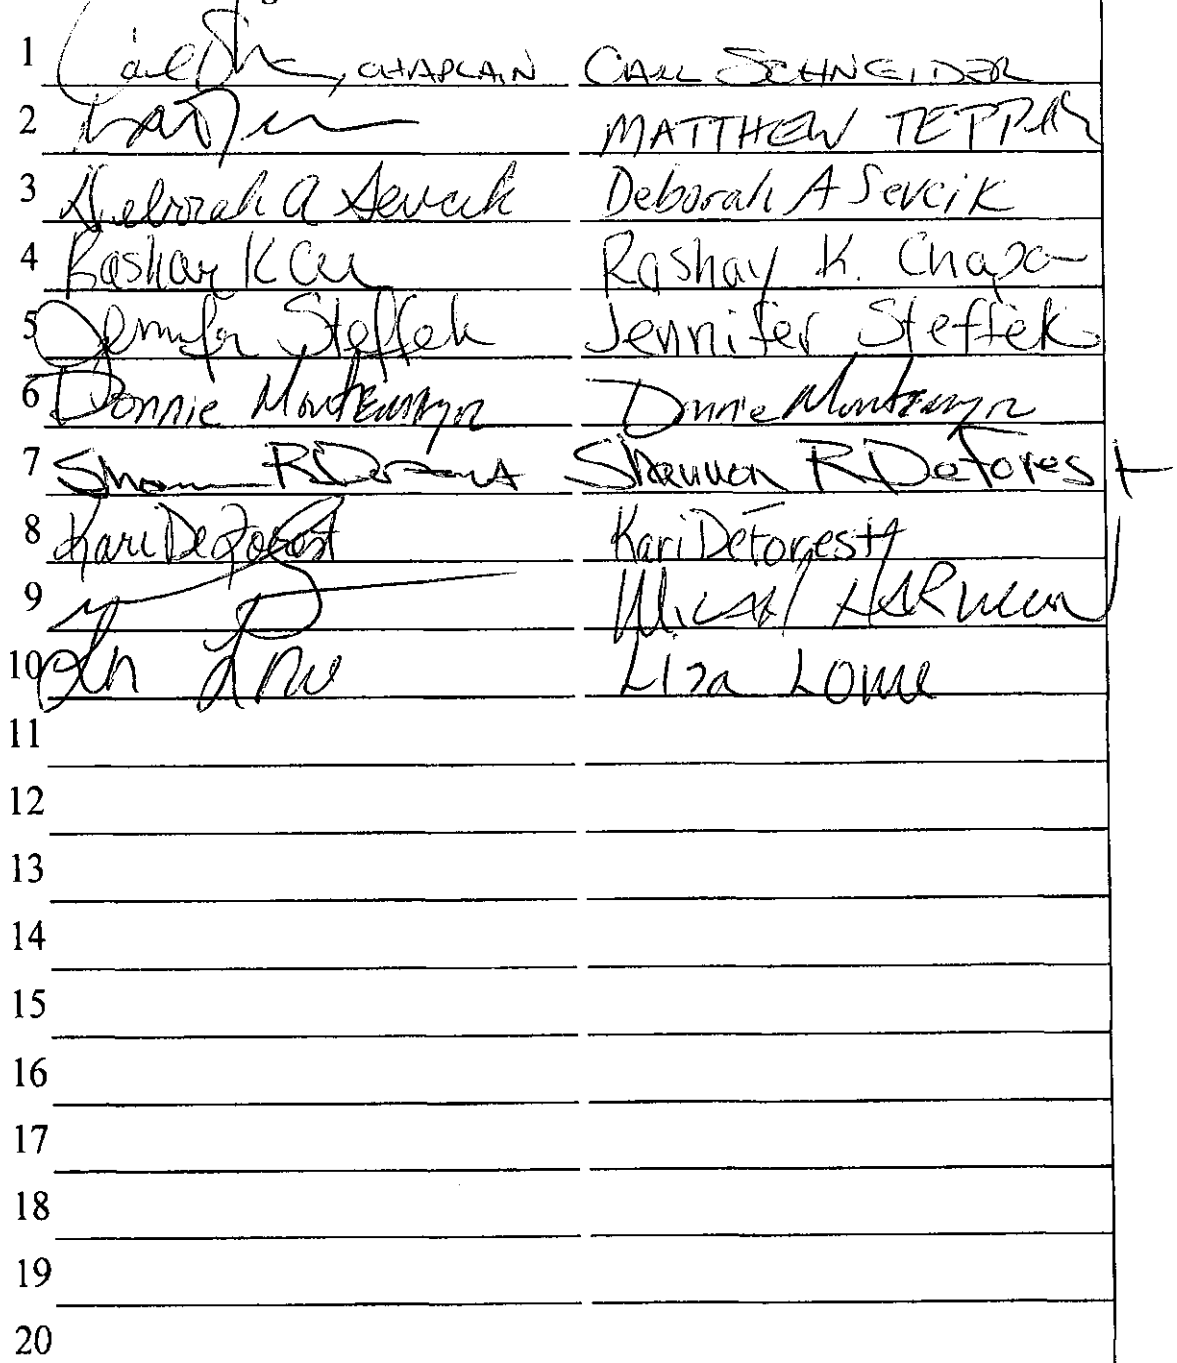 1 , CHAPLAIN CARL SCHNEIDER
2 MATTHEW TEPPER
3 Deborah A Sevcik Deborah A Sevcik
4 Rashay K. Chapa
5 Jennifer Steffek Jennifer Steffek
6 Donnie Montemayor Donnie Montemayor
7 Shannon R DeForest
8 Kari DeForest Kari DeForest
9 MICAH HARMON
10 Liza Lowe
11
12
13
14
15
16
17
18
19
20